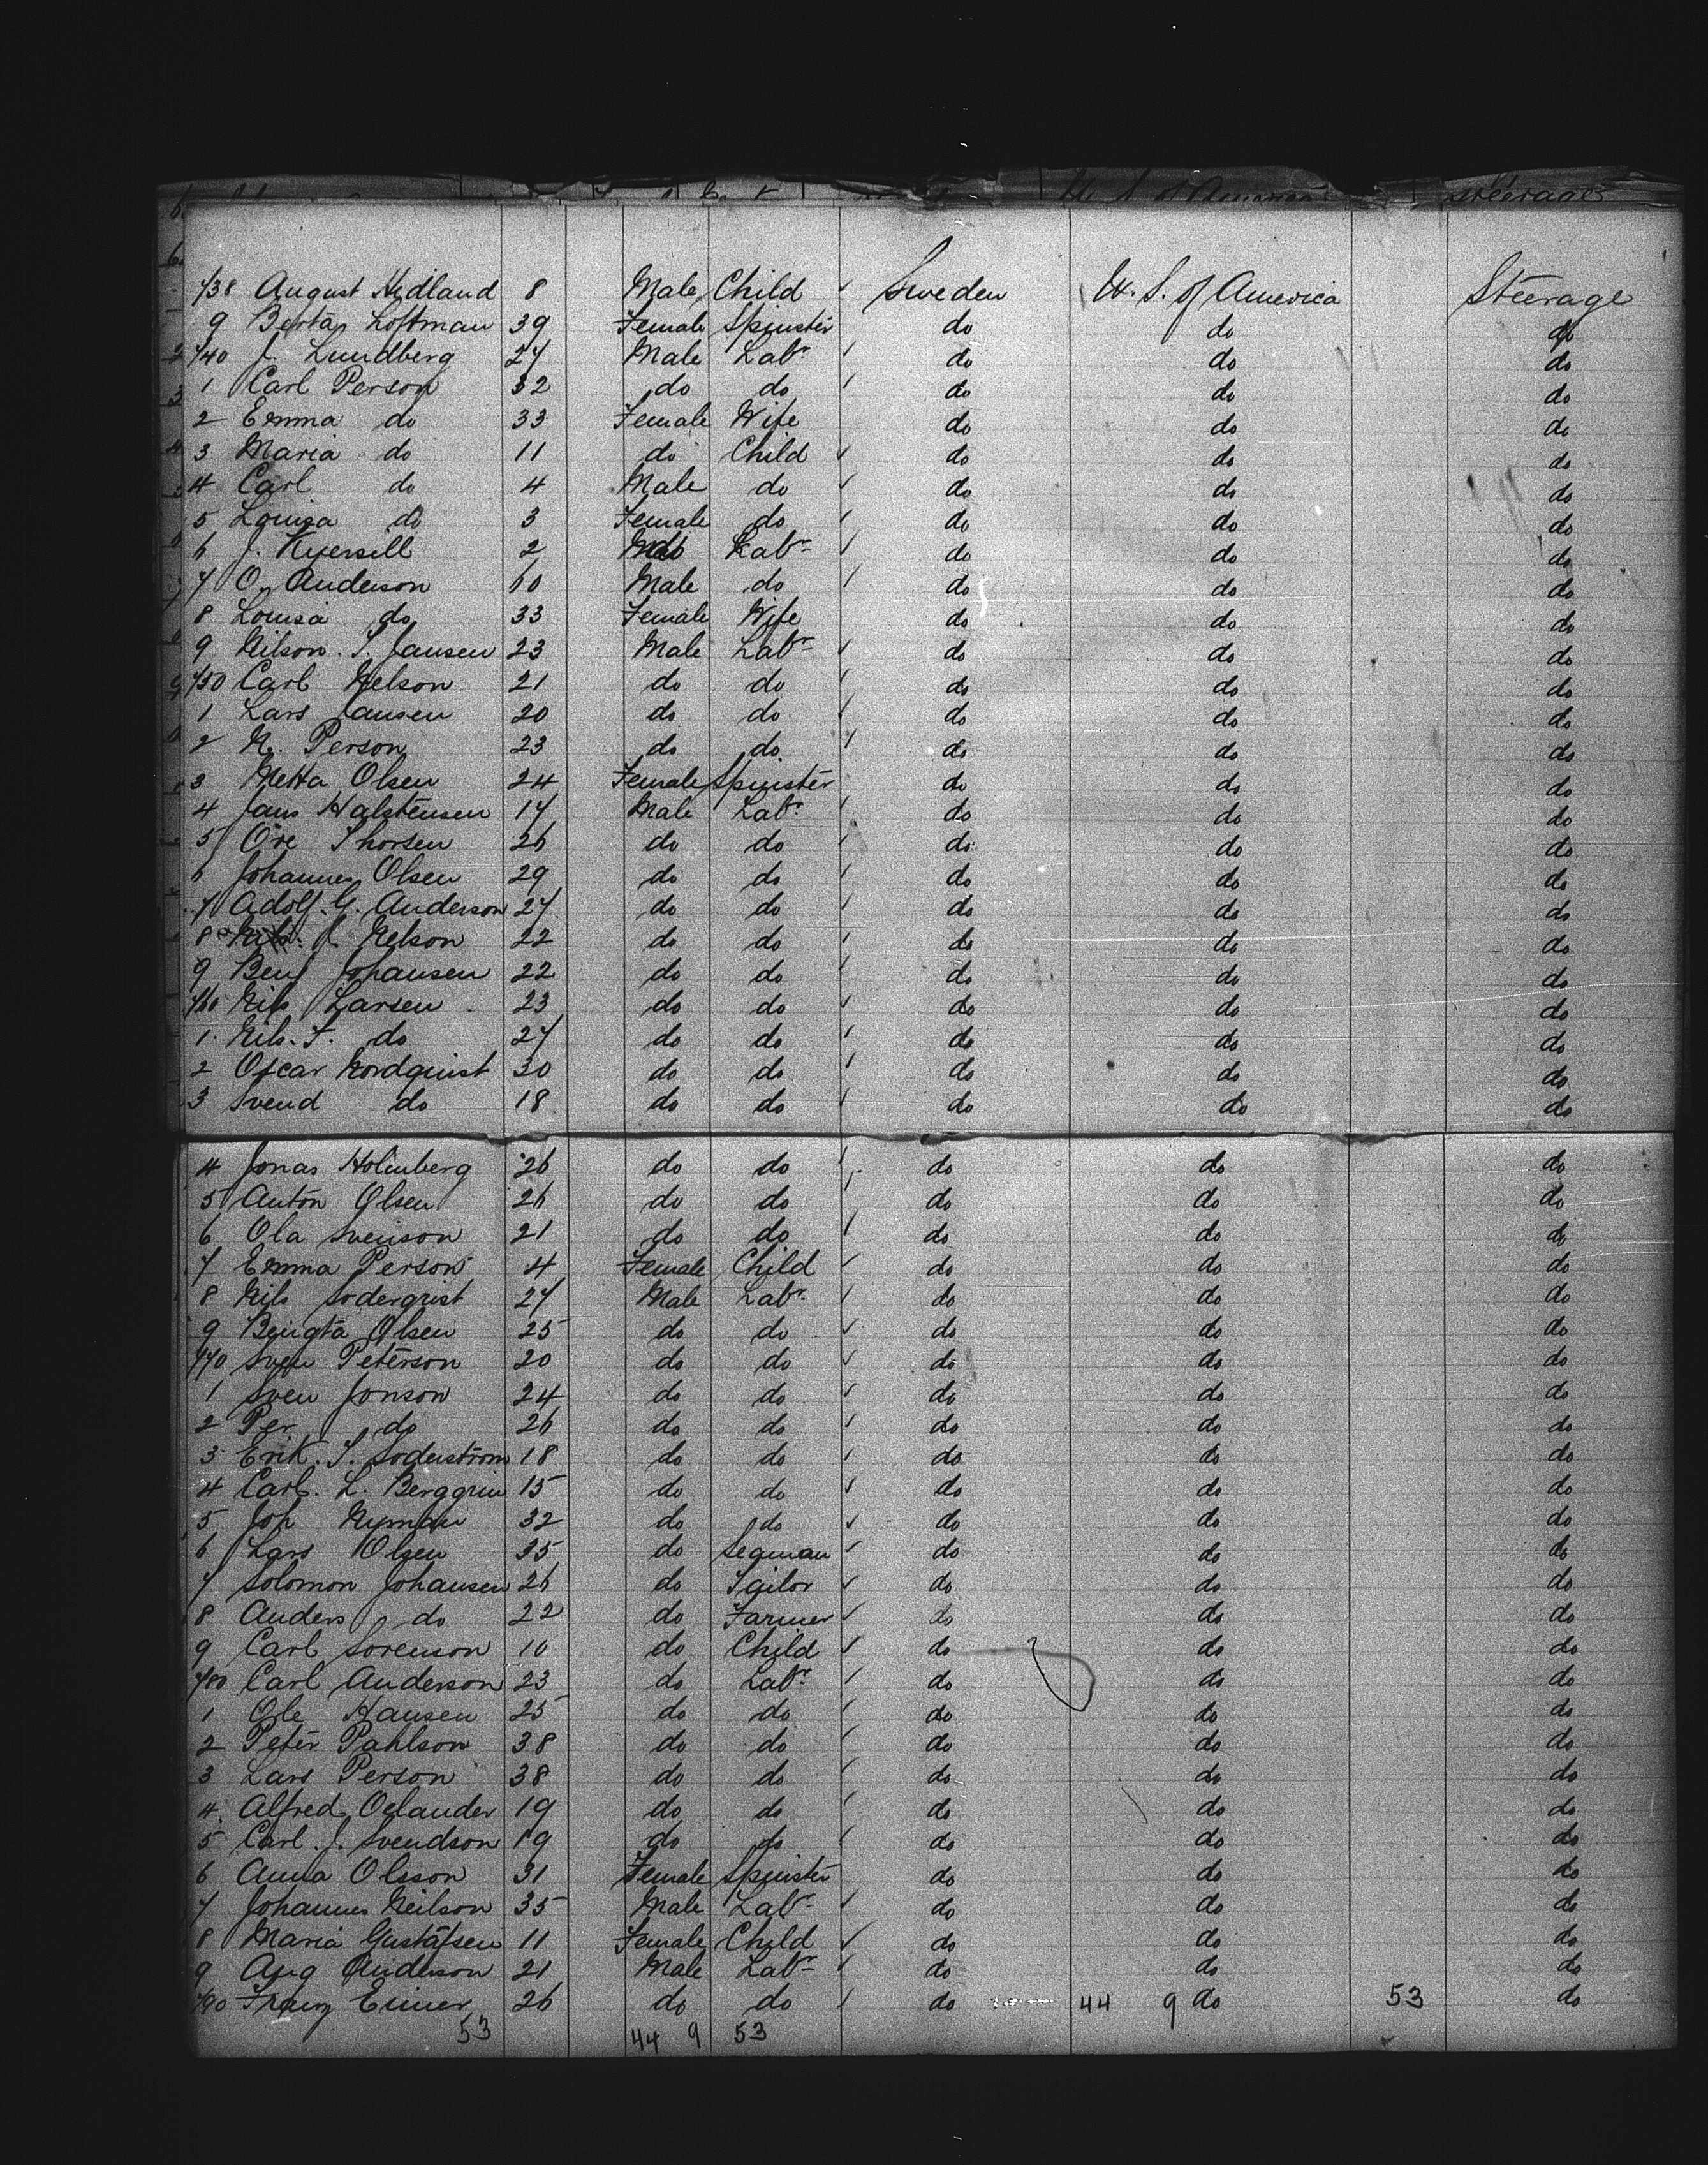 U. S. of America Steerage
738 August Hedland 8 Male Child Sweden U. S. of America Steerage
9 Berta Loftman 39 Female Spinster do do do
740 J. Lundberg 27 Male Labr do do do
1 Carl Person 32 do do do do do
2 Emma do 33 Female Wife do do do
3 Maria do 11 do Child do do do
4 Carl do 4 Male do do do do
5 Louisa do 3 Female do do do do
6 J. 2 Labr do do do
7 O. Anderson 60 Male do do do do
8 Louisa do 33 Female Wife do do do
9 Nilson. S. Jansen 23 Male Labr do do do
750 Carl Nelson 21 do do do do do
1 Lars Jansen 20 do do do do do
2 N. Person 23 do do do do do
3 Netta Olsen 24 Female Spinster do do do
4 Jans Halstensen 17 Male Labr do do do
5 Ore Thorsen 26 do do do do do
6 Johannes Olsen 29 do do do do do
7 Adolf. G. Anderson 27 do do do do do
8 Nils. J. Nelson 22 do do do do do
9 Benj Johansen 22 do do do do do
760 Nils Larsen 23 do do do do do
1 Nils. T. do 27 do do do do do
2 Oscar Nordquist 30 do do do do do
3 Svend do 18 do do do do do
4 Jonas Holmberg 26 do do do do do
5 Anton Olsen 26 do do do do do
6 Ola Svenson 21 do do do do do
7 Emma Person 4 Female Child do do do
8 Nils Soderqrist 27 Male Labr do do do
9 Bengta Olsen 25 do do do do do
770 Sven Peterson 20 do do do do do
1 Sven Jonson 24 do do do do do
2 Per do 26 do do do do do
3 Erik. S. Soderstrom 18 do do do do do
4 Carl. L. Berggrin 15 do do do do do
5 Joh Nyman 32 do do do do do
6 Lars Olsen 35 do Seaman do do do
7 Solomon Johansen 26 do Tailor do do do
8 Anders do 22 do Farmer do do do
9 Carl Sorenson 10 do Child do do do
780 Carl Anderson 23 do Labr do do do
1 Ole Hansen 25 do do do do do
2 Peter Pahlson 38 do do do do do
3 Lars Person 38 do do do do do
4 Alfred Oelander 19 do do do do do
5 Carl. J. Svendson 19 do do do do do
6 Anna Olsson 31 Female Spinster do do do
7 Johannes Neilson 35 Male Labr do do do
8 Maria Gustafsen 11 Female Child do do do
9 Aug Anderson 21 Male Labr do do do
790 Franz Eimer 26 do do do 44 9 do 53 do
53 44 9 53